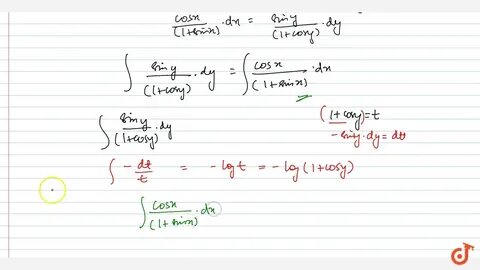 cosx/(1+sinx) · dx = siny/(1+cosy) · dy
∫ siny/(1+cosy) · dy = ∫ cosx/(1+sinx) · dx
∫ siny/(1+cosy) · dy
(1+cosy)=t
-siny·dy=dt
∫ - dt/t = -logt = -log(1+cosy)
∫ cosx/(1+sinx) · dx
doubtnut